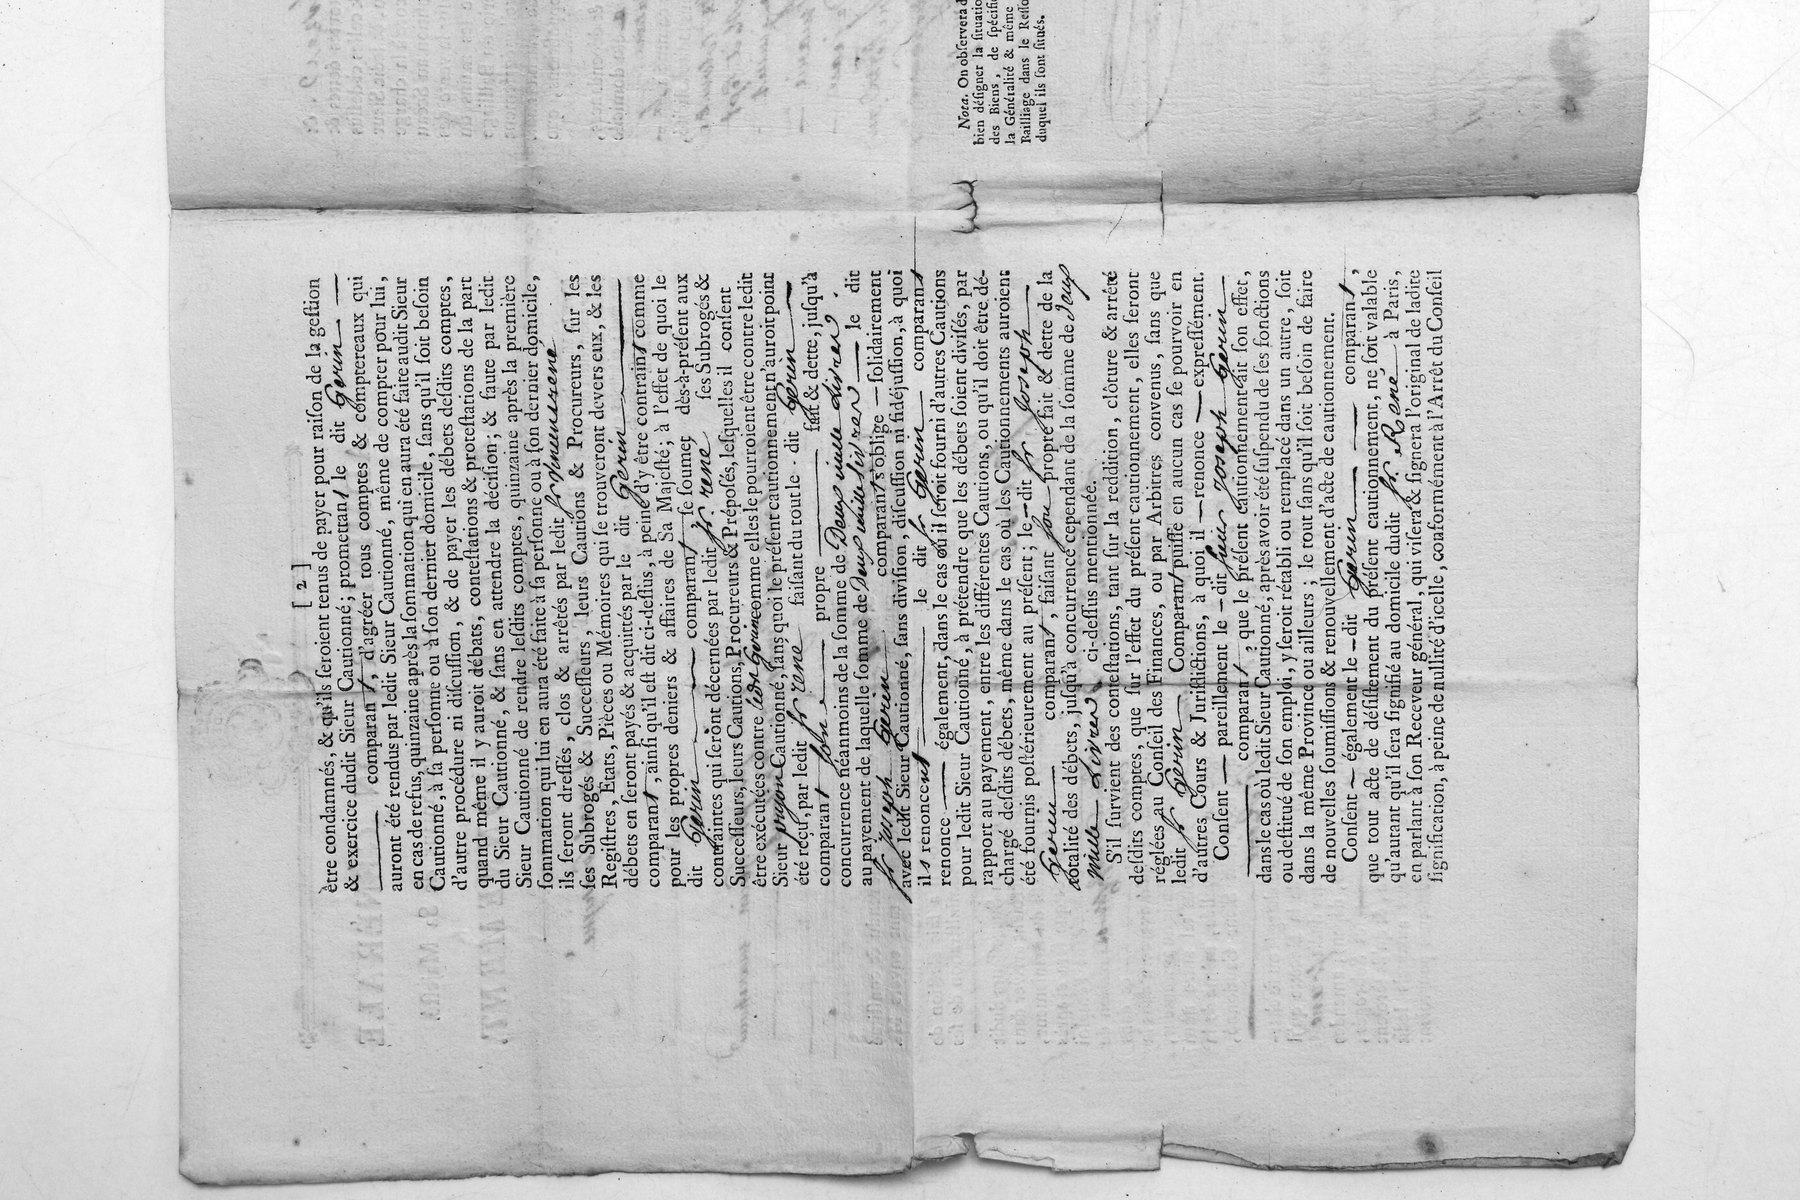 [ 2 ]
être condamnés, & qu'ils ſeroient tenus de payer pour raiſon de la geſtion
& exercice dudit Sieur Cautionné; promettant le dit Gerin
comparant, d'agréer tous comptes & comptereaux qui
auront été rendus par ledit Sieur Cautionné, même de compter pour lui,
en cas de refus, quinzaine après la ſommation qui en aura été faite audit Sieur
Cautionné, à ſa perſonne ou à ſon dernier domicile, ſans qu'il ſoit beſoin
d'autre procédure ni diſcuſſion, & de payer les débets deſdits comptes,
quand même il y auroit débats, conteſtations & proteſtations de la part
du Sieur Cautionné, & ſans en attendre la déciſion; & faute par ledit
Sieur Cautionné de rendre leſdits comptes, quinzaine après la première
ſommation qui lui en aura été faite à ſa perſonne ou à ſon dernier domicile,
ils ſeront dreſſés, clos & arrêtés par ledit Sr
ſes Subrogés & Succeſſeurs, leurs Cautions & Procureurs, ſur les
Regiſtres, Etats, Pièces ou Mémoires qui ſe trouveront devers eux, & les
débets en ſeront payés & acquittés par le dit Gerin
comparant, ainſi qu'il eſt dit ci-deſſus, à peine d'y être contraint comme
pour les propres deniers & affaires de Sa Majeſté; à l'effet de quoi le
dit Gerin comparant ſe ſoumet, dès-à-préſent aux
contraintes qui ſeront décernées par ledit Sr rené ſes Subrogés &
Succeſſeurs, leurs Cautions, Procureurs & Prépoſés, leſquelles il conſent
être exécutées contre comme elles le pourroient être contre ledit
Sieur Cautionné, ſans quoi le préſent cautionnement n'auroit point
été reçu, par ledit Sr rené faiſant du tout le dit Gerin
comparant ſon propre fait & dette, juſqu'à
concurrence néanmoins de la ſomme de Deux mille Livres
au payement de laquelle ſomme de Deux mille livres le dit
Sr Joseph Gerin comparant s'oblige ſolidairement
avec ledit Sieur Cautionné, ſans diviſion, diſcuſſion ni fidéjuſſion, à quoi
ils renoncent le dit Sr Gerin comparant
renonce également, dans le cas où il ſeroit fourni d'autres Cautions
pour ledit Sieur Cautionné, à prétendre que les débets ſoient diviſés, par
rapport au payement, entre les différentes Cautions, ou qu'il doit être dé-
chargé deſdits débets, même dans le cas où les Cautionnements auroient
été fournis poſtérieurement au préſent; le dit Sr Joseph
Gerin comparant, faiſant ſon propre fait & dette de la
totalité des débets, juſqu'à concurrence cependant de la ſomme de Deux
mille Livres ci-deſſus mentionnée.
S'il ſurvient des conteſtations, tant ſur la reddition, clôture & arrêté
deſdits comptes, que ſur l'effet du préſent cautionnement, elles ſeront
réglées au Conſeil des Finances, ou par Arbitres convenus, ſans que
ledit Sr Gerin Comparant puiſſe en aucun cas ſe pourvoir en
d'autres Cours & Juriſdictions, à quoi il renonce expreſſément.
Conſent pareillement le dit Sieur Joseph Gerin
comparant que le préſent cautionnement ait ſon effet,
dans le cas où ledit Sieur Cautionné, après avoir été ſuſpendu de ſes fonctions
ou deſtitué de ſon emploi, y ſeroit rétabli ou remplacé dans un autre, ſoit
dans la même Province ou ailleurs; le tout ſans qu'il ſoit beſoin de faire
de nouvelles ſoumiſſions & renouvellement d'acte de cautionnement.
Conſent également le dit Gerin comparant,
que tout acte de déſiſtement du préſent cautionnement, ne ſoit valable
qu'autant qu'il ſera ſignifié au domicile dudit Sr René à Paris,
en parlant à ſon Receveur général, qui viſera & ſignera l'original de ladite
ſignification, à peine de nullité d'icelle, conformément à l'Arrêt du Conſeil
Nota. On obſervera
bien déſigner la ſituatio
des Biens, de ſpécifie
la Généralité & même
Bailliage dans le Reſſo
duquel ils ſont ſitués.